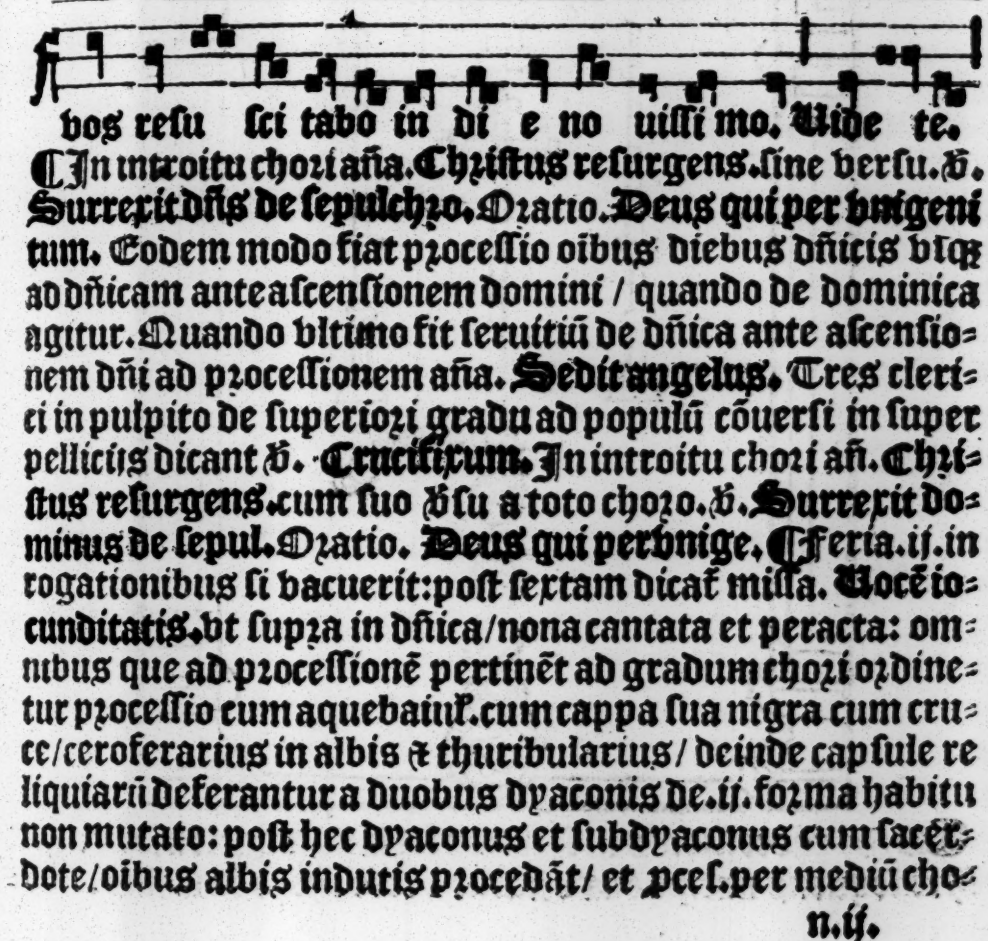 vos resu sci tabo in di e no uissi mo. Uide te.
¶In introitu chori añа. Christus resurgens. sine versu. ℣.
Surrexit dñs de sepulchro. Oratio. Deus qui per vnigeni
tum. Eodem modo fiat processio oĩbus diebus dñicis vsqꝫ
ad dñicam ante ascensionem domini / quando de dominica
agitur. Quando vltimo fit seruitiũ de dñica ante ascensio⸗
nem dñi ad processionem aña. Sedit angelus. Tres cleri⸗
ci in pulpito de superiori gradu ad populũ cõuersi in super
pelliciis dicant ℣. Crucifixum. In introitu chori añ. Chri⸗
stus resurgens. cum suo ℣su a toto choro. ℣. Surrexit do⸗
minus de sepul. Oratio. Deus qui per vnige. ¶Feria .ij. in
rogationibus si vacuerit: post sextam dicat̃ missa. Vocẽ io⸗
cunditatis. vt supra in dñica / nona cantata et peracta: om⸗
nibus que ad processionẽ pertinẽt ad gradum chori ordine⸗
tur processio cum aquebaiul̃. cum cappa sua nigra cum cru⸗
ce / ceroferarius in albis ⁊ thuribularius / deinde capsule re
liquiarũ deferantur a duobus dyaconis de .ij. forma habitu
non mutato: post hec dyaconus et subdyaconus cum sacer⸗
dote / oĩbus albis indutis procedãt / et ꝓces. per mediũ cho⸗
n.ij.